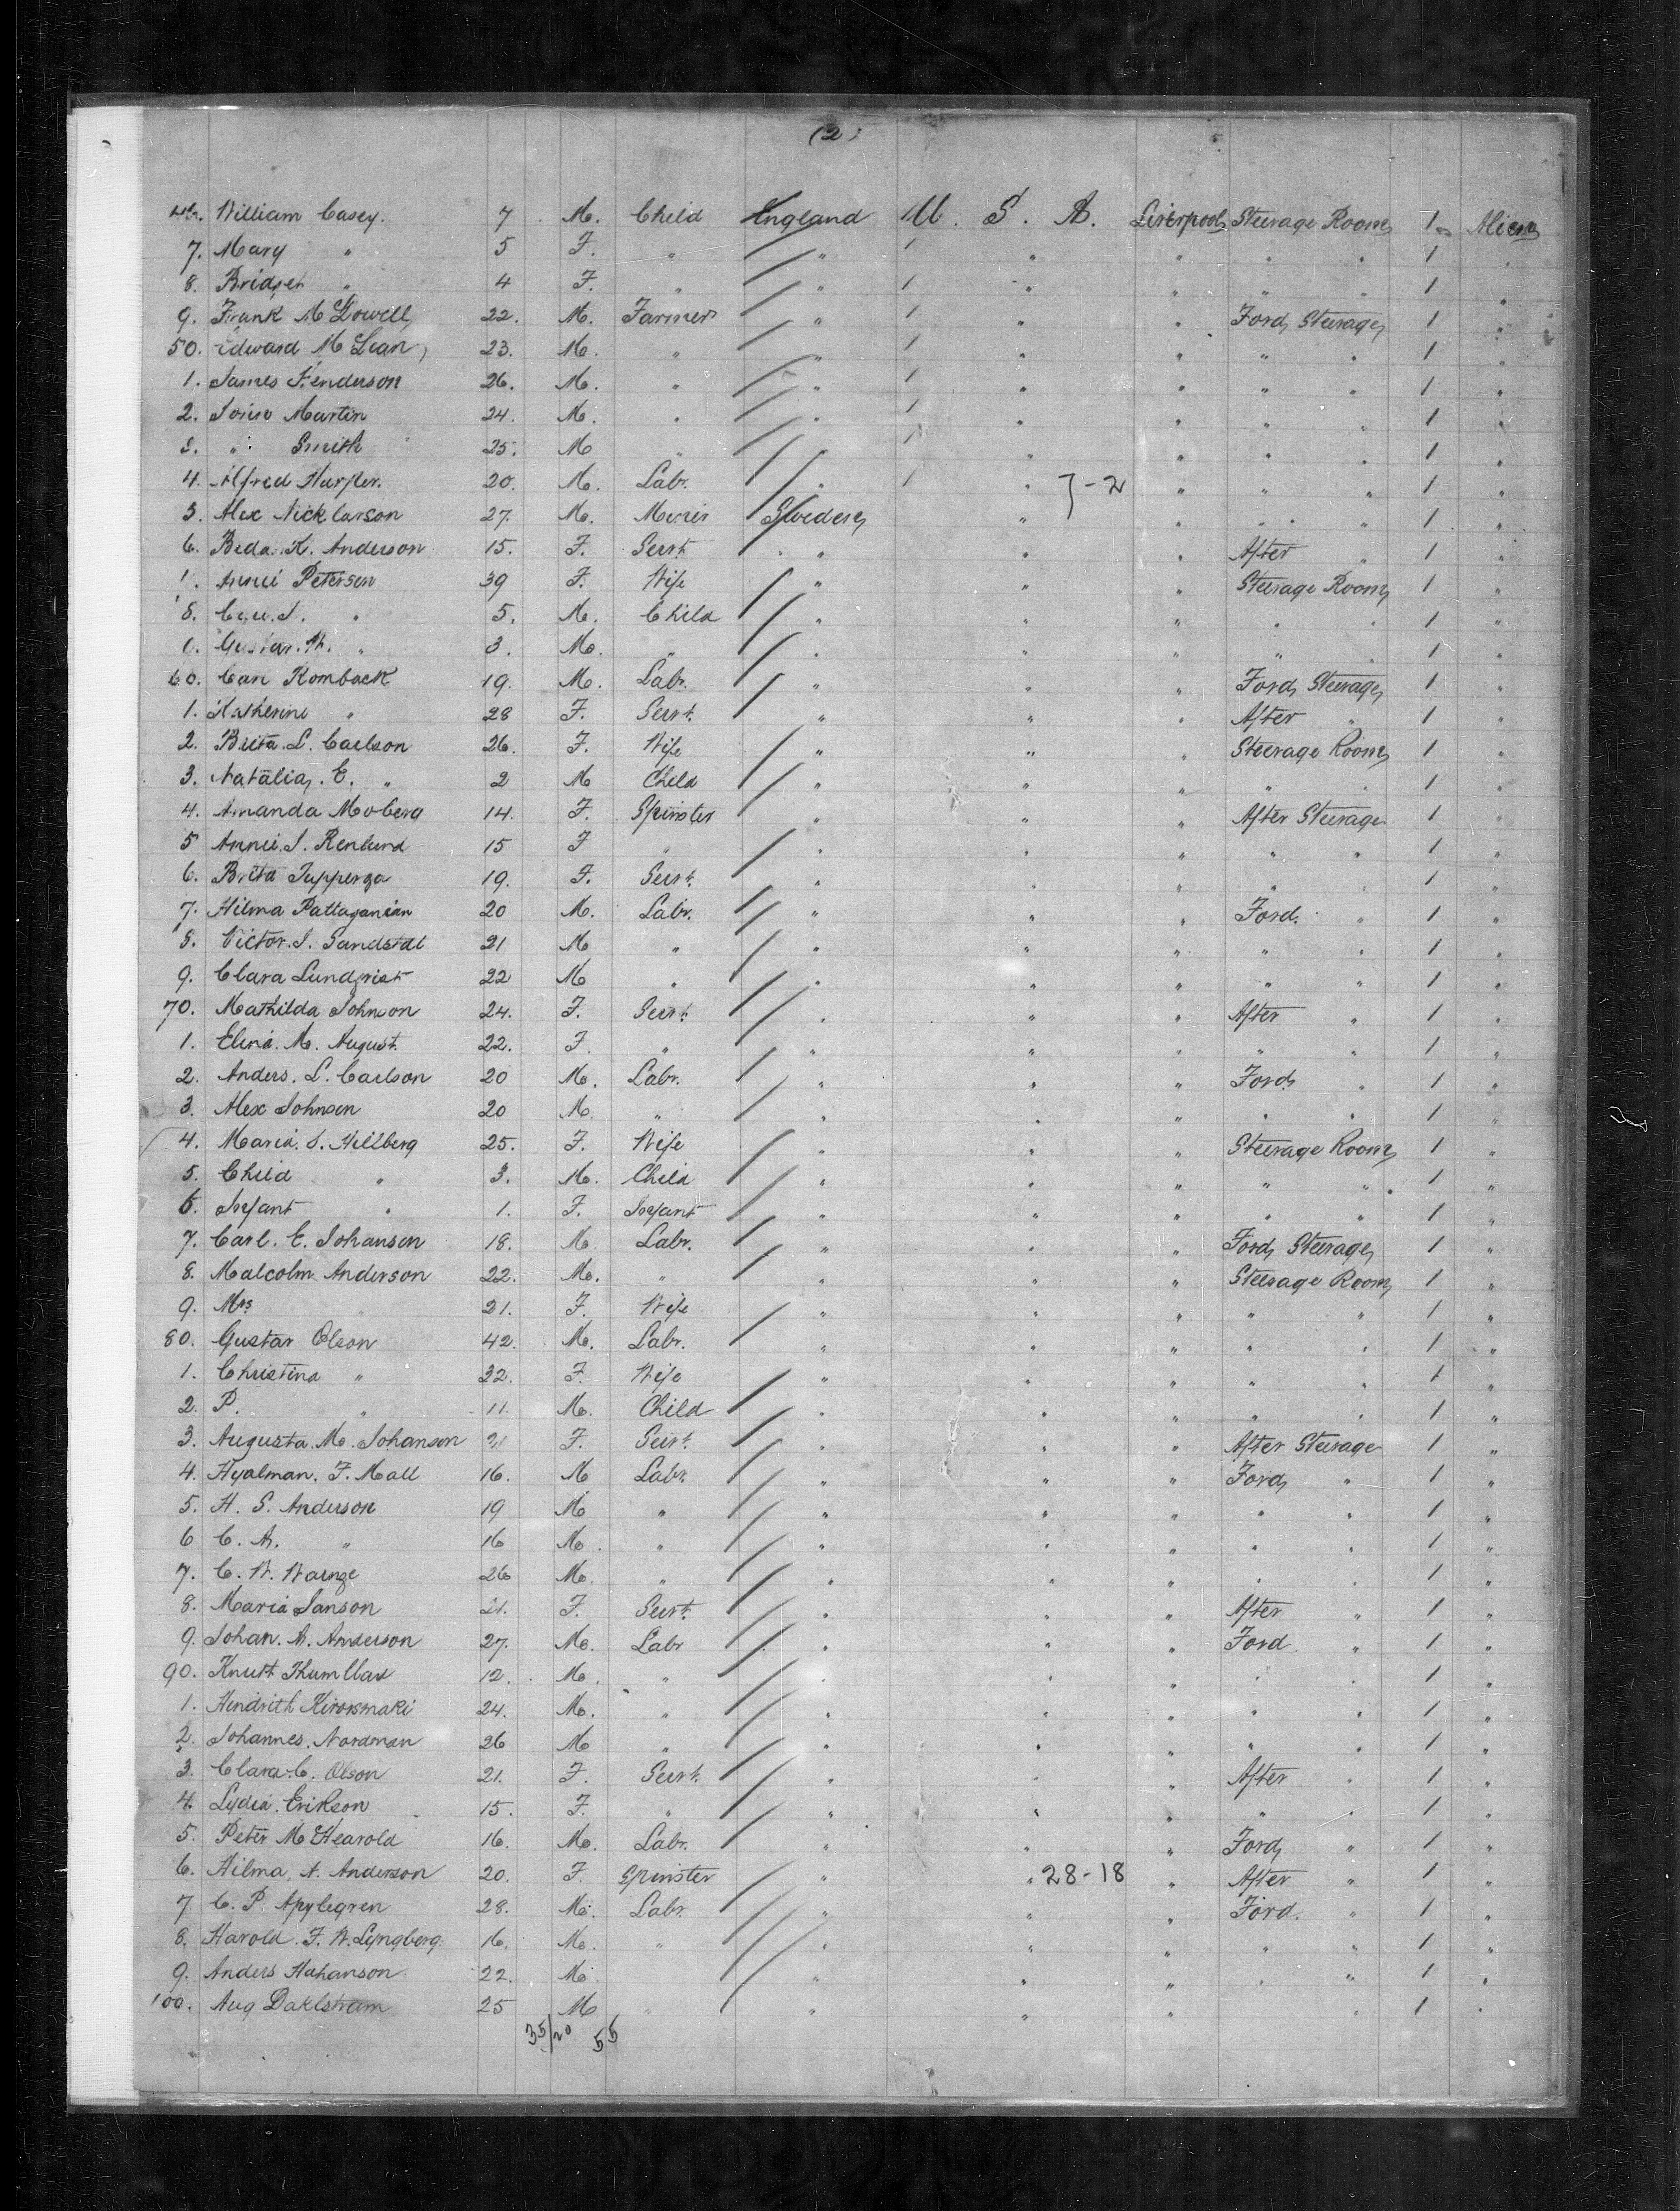 (2)
46. William Casey. 7 M. Child England U. S. A. Liverpool Steerage Room 1 Alien
7. Mary " 5 F. " " " " " " 1 "
8. Bridget " 4 F. " " " " " " 1 "
9. Frank McDowell 22. M. Farmer " " " Ford Steerage 1 "
50. Edward McLean, 23. M. " " " " " " 1 "
1. James Henderson 26. M. " " " " " " 1 "
2. John Martin 24. M. " " " " " " 1 "
3. " Smith 25. M " " " " " " 1 "
4. Alfred Harper. 20. M. Labr. " " 7-2 " " " 1 "
5. Alex Nicklarson 27. M. Miner Sweden " " " " 1 "
6. Beda. K. Anderson 15. F. Servt. " " " After " 1 "
7. Annie Peterson 39 F. Wife " " " Steerage Room 1 "
8. " 5. M. Child " " " " " 1 "
9. Gustav. " 3. M. " " " " " " 1 "
60. Carl Komback 19. M. Labr. " " " Ford Steerage 1 "
1. Katherine " 28 F. Servt. " " " After " 1 "
2. Brita. L. Carlson 26. F. Wife " " " Steerage Room 1 "
3. Natalia, E. " 2 M Child " " " " " 1 "
4. Amanda Moberg 14. F. Spinster " " " After Steerage 1 "
5 Annie. J. Renlund 15 F " " " " " " 1 "
6. Brita Jupperga 19. F. Servt. " " " " " 1 "
7. Hilma Pattaganian 20 M. Labr. " " " Ford. " 1 "
8. Victor. J. Sandstal 21 M " " " " " " 1 "
9. Clara Lundqvist 22 M " " " " " " 1 "
70. Mathilda Johnson 24. F. Servt. " " " After " 1 "
1. Elina. M. August. 22. F. " " " " " " 1 "
2. Anders. L. Carlson 20 M. Labr. " " " Ford " 1 "
3. Alex Johnson 20 M. " " " " " " 1 "
4. Maria. S. Hillberg 25. F. Wife " " " Steerage Room 1 "
5. Child " 3. M. Child " " " " " 1 "
6. Infant " 1. F. Infant " " " " " 1 "
7. Carl. E. Johanson 18. M. Labr. " " " Ford Steerage 1 "
8. Malcolm Anderson 22. M. " " " " Steerage Room 1 "
9. Mrs " 21. F. Wife " " " " " 1 "
80. Gustav Olson 42. M. Labr. " " " " " 1 "
1. Christina " 32. F. Wife " " " " " 1 "
2. P. " 11. M. Child " " " " " 1 "
3. Augusta. M. Johanson 21 F. Servt. " " " After Steerage 1 "
4. Hyalman. F. Mall 16. M Labr. " " " Ford " 1 "
5. H. S. Anderson 19 M " " " " " " 1 "
6 C. A. " 16 M. " " " " " " 1 "
7. C. W. Wainge 26 M. " " " " " " 1 "
8. Maria Janson 21. F. Servt. " " " After " 1 "
9. Johan. A. Anderson 27. M. Labr " " " Ford " 1 "
90. Knutt 12. M. " " " " " " 1 "
1. Hindrith 24. M. " " " " " " 1 "
2. Johannes. Nordman 26 M " " " " " " 1 "
3. Clara. C. Olson 21. F. Servt. " " " After " 1 "
4. Lydia. Erikson 15. F. " " " " " " 1 "
5. Peter McHearold 16. M. Labr. " " " Ford " 1 "
6. Hilma, A. Anderson 20. F. Spinster " " 28-18 " After " 1 "
7 C. P. Apylegren 28. M. Labr. " " " Ford. " 1 "
8. Harold. F. W. Lyngberg. 16. M. " " " " " " 1 "
9. Anders Hahanson 22. M. " " " " " " 1 "
100. Aug Dahlstram 25 M " " " " " 1 "
35/20 55